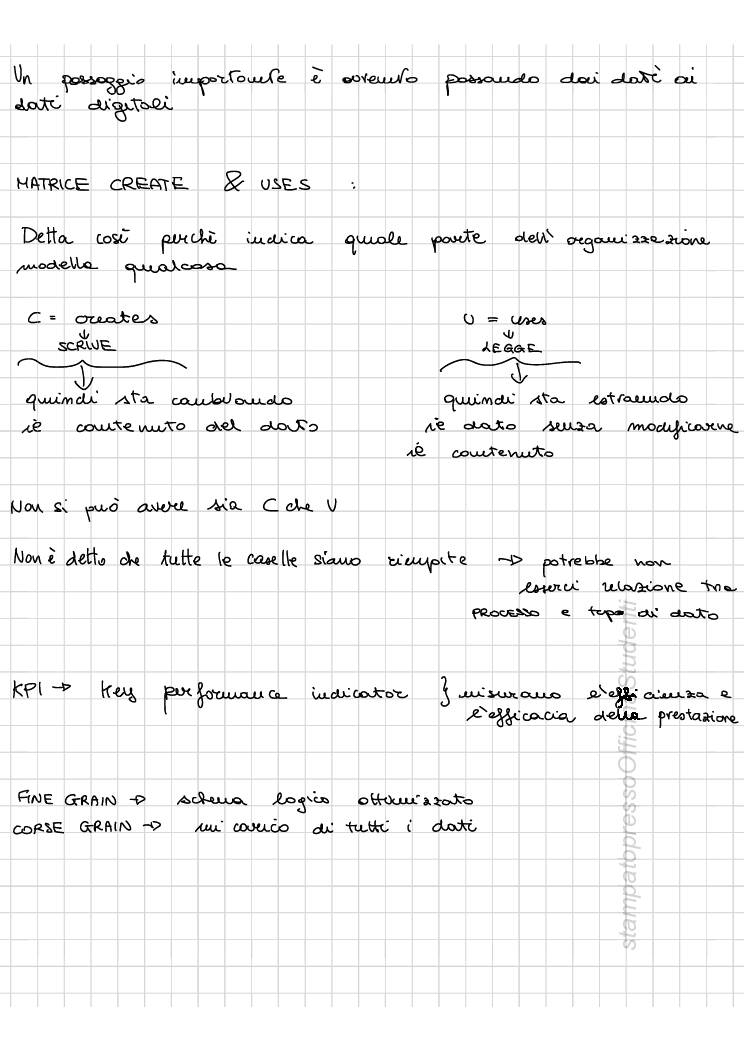 Un passaggio importante è avvenuto passando dai dati ai
dati digitali
MATRICE CREATE & USES :
Detta così perchè indica quale parte dell' organizzazione
modella qualcosa
C = creates
SCRIVE
quindi sta cambiando
il contenuto del dato
U = uses
LEGGE
quindi sta estraendo
il dato senza modificarne
il contenuto
Non si può avere sia C che U
Non è detto che tutte le caselle siano riempite → potrebbe non
esserci relazione tra
PROCESSO e tipo di dato
KPI → Key performance indicator } misurano l'efficienza e
l'efficacia della prestazione
FINE GRAIN → schema logico ottimizzato
CORSE GRAIN → mi carico di tutti i dati
stampatopressoOfficineStudenti